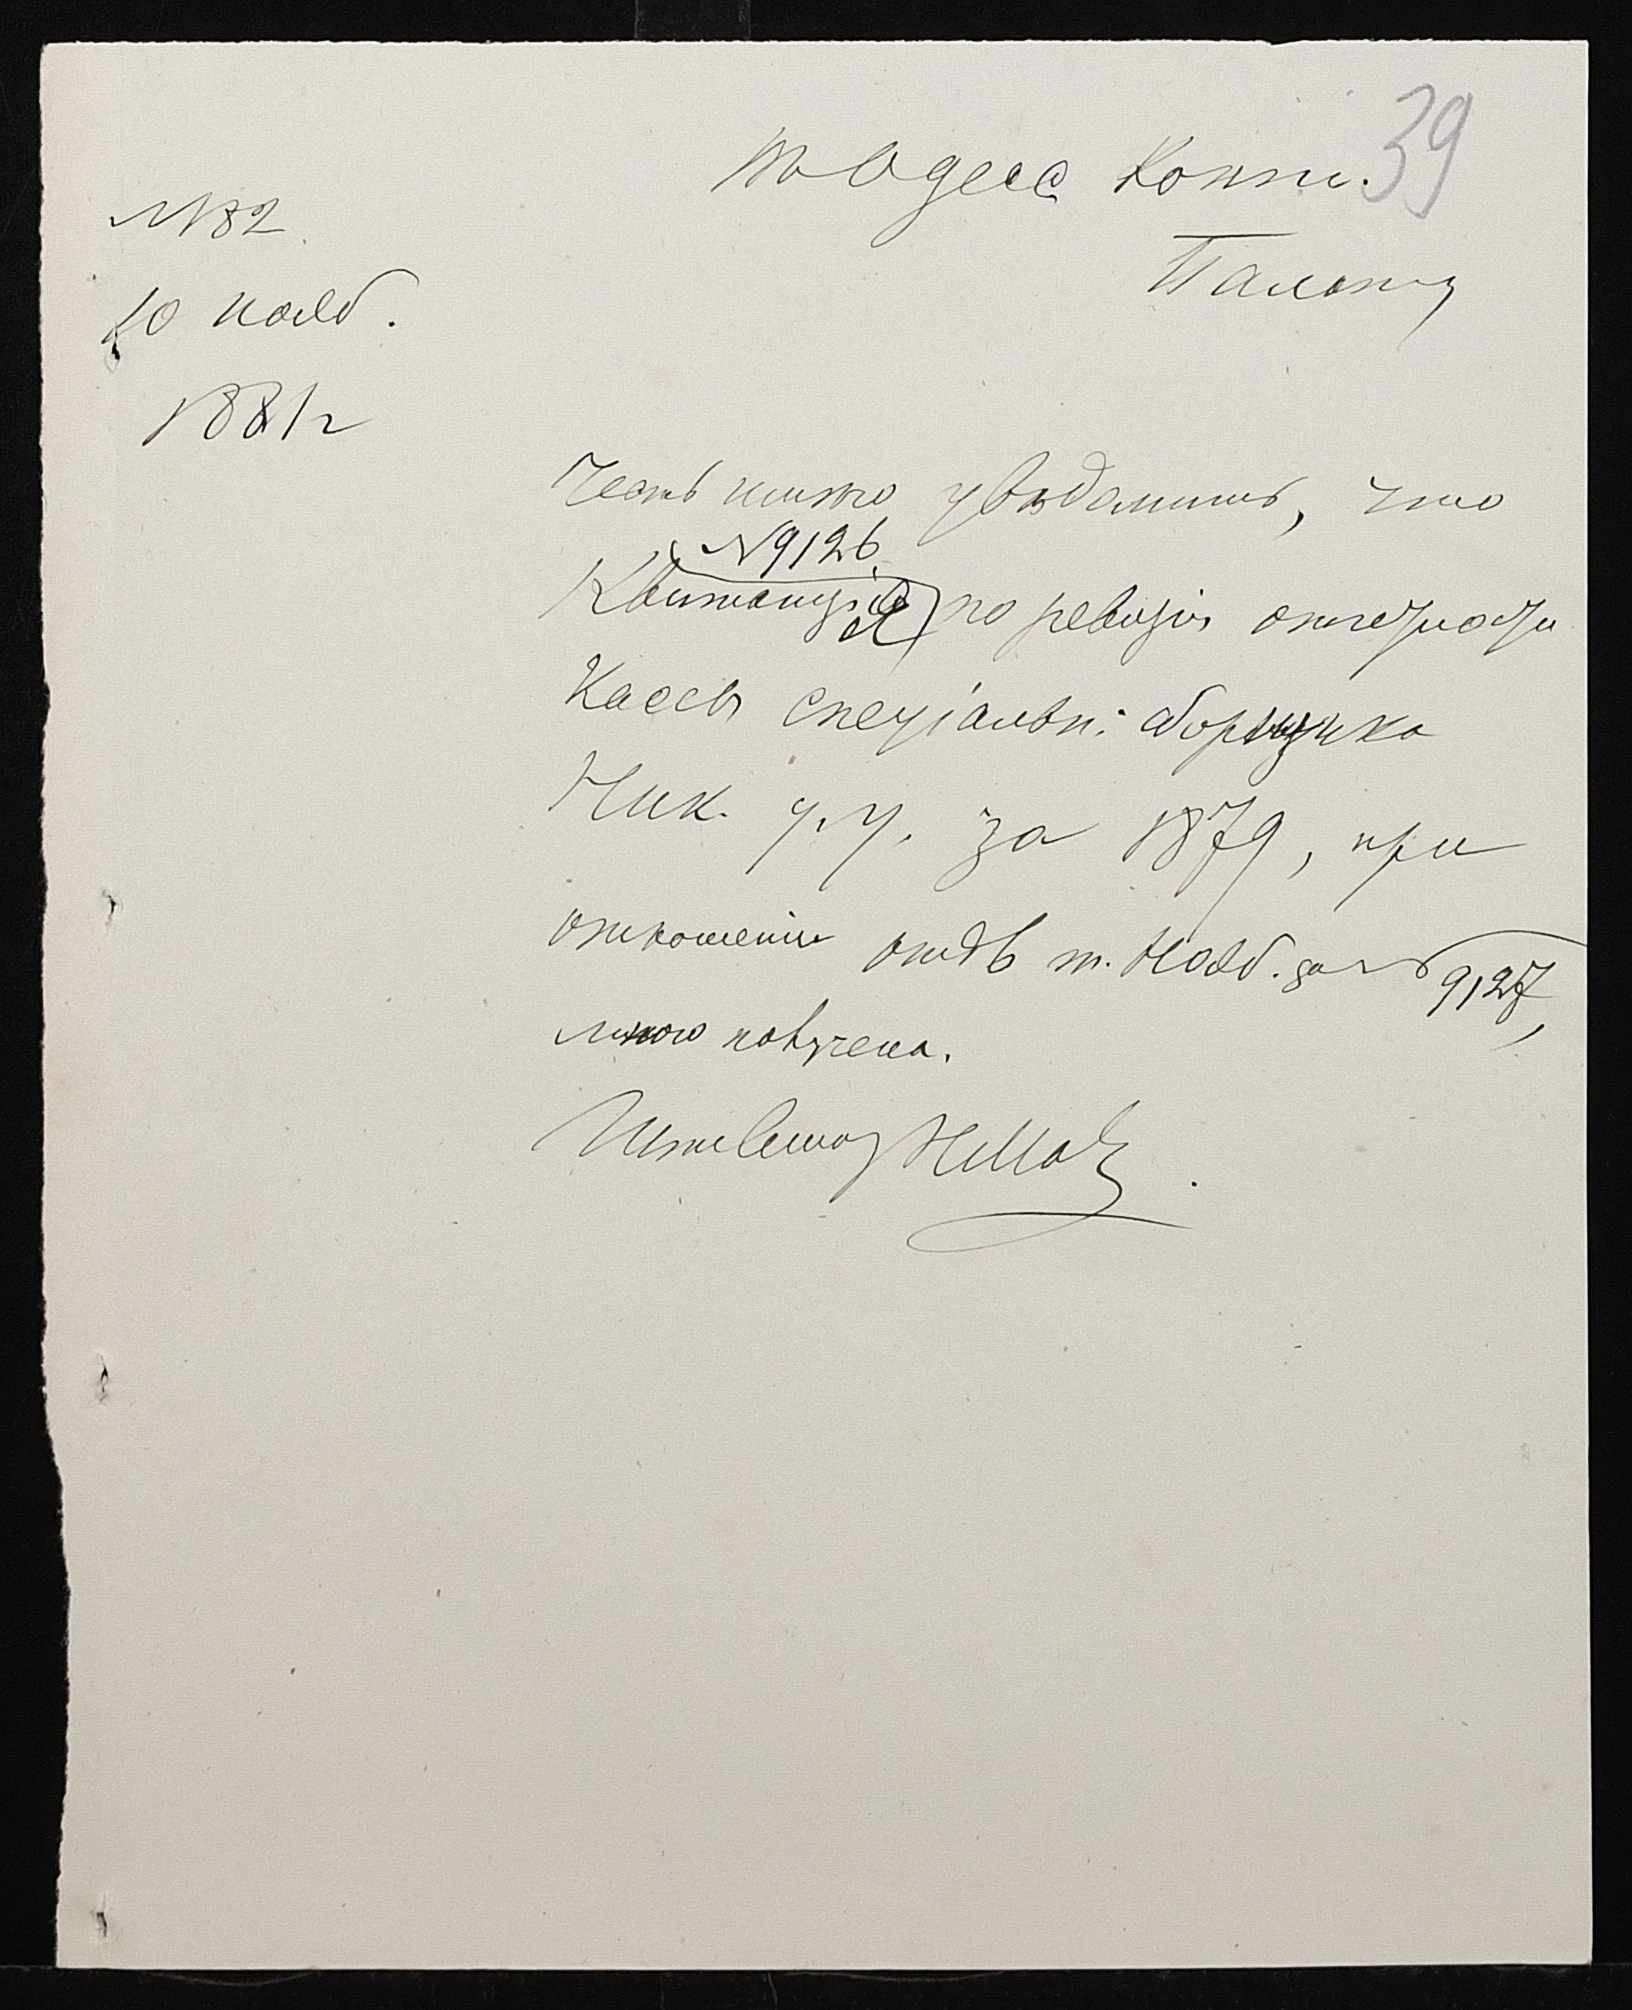 39
въ Одесс. Контр.
Палату
№ 82
10 нояб.
1881 г
Честь имѣю увѣдомить, что
№ 9126
Квитанція по ревизіи отчетности
Кассы спеціальн. сборщика
Ник. у. у. за 1879, при
отношеніи отъ 6 т. Нояб. за № 9127,
мною получена.